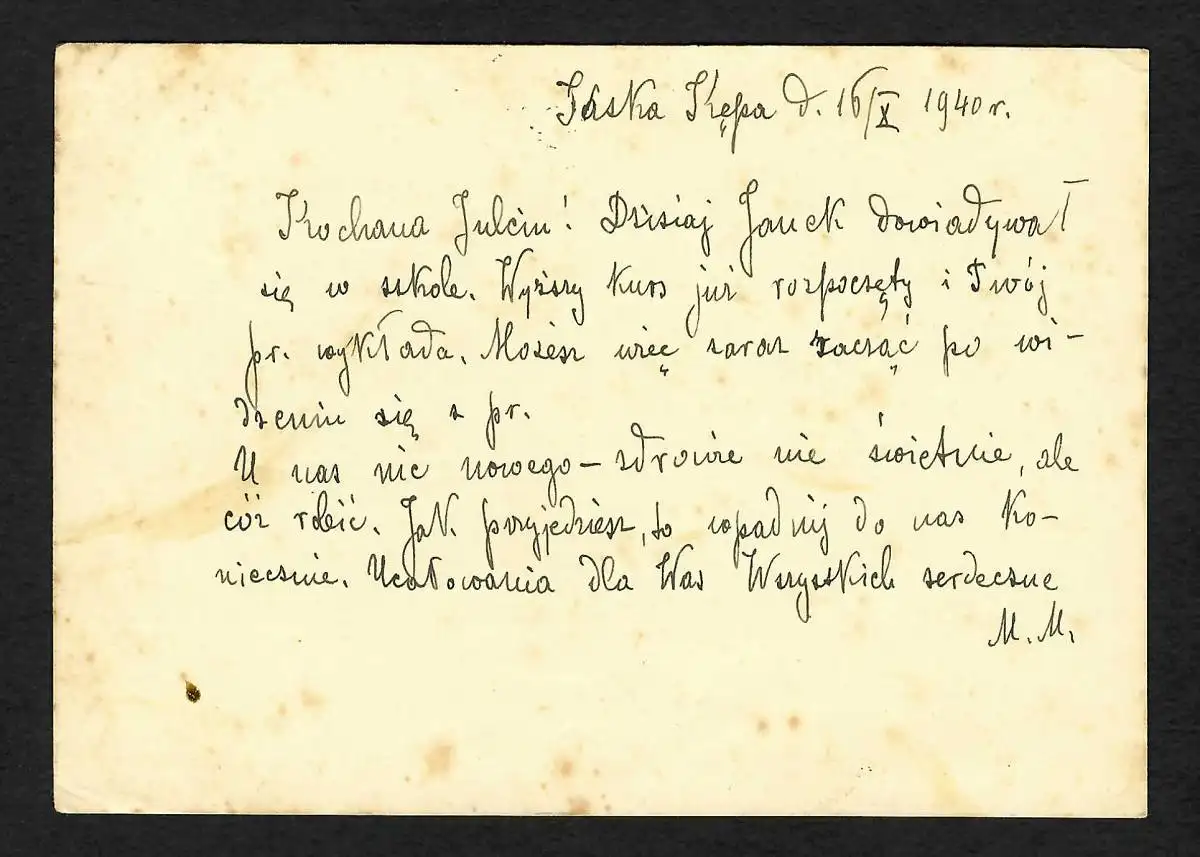 Saska Kępa d. 16/X 1940 r.
Kochana Julciu! Dzisiaj Janek dowiadywał
się w szkole. Wyższy kurs już rozpoczęty i Twój
pr. wykłada. Możesz więc zaraz zacząć po wi-
dzeniu się z pr.
U nas nic nowego – zdrowie nie świetnie, ale
cóż robić. Jak przyjedziesz, to wpadnij do nas ko-
niecznie. Ucałowania dla Was Wszystkich serdeczne
M. M.